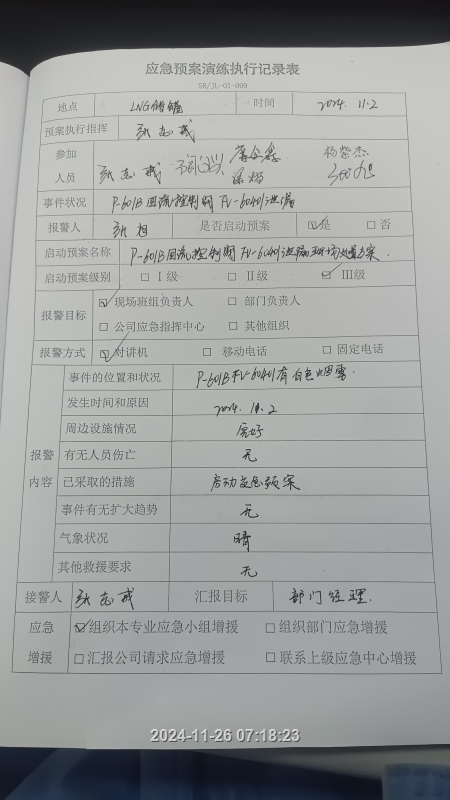 应急预案演练执行记录表
SR/JL-01-099
地点 LNG储罐 时间 2024.11.2
预案执行指挥 张志成
参加
人员 张志成 杨崇杰
事件状况 P-601B回流控制阀 FV-60401泄漏
报警人 张旭 是否启动预案 ☑是 □否
启动预案名称 P-601B回流控制阀 FV-60401泄漏现场处置方案.
启动预案级别 □Ⅰ级 □Ⅱ级 ☑Ⅲ级
报警目标 ☑现场班组负责人 □部门负责人
□公司应急指挥中心 □其他组织
报警方式 ☑对讲机 □移动电话 □固定电话
报警
内容
事件的位置和状况 P-601B FV-60401有白色烟雾.
发生时间和原因 2024.11.2
周边设施情况 完好
有无人员伤亡 无
已采取的措施 启动应急预案
事件有无扩大趋势 无
气象状况 晴
其他救援要求 无
接警人 张志成 汇报目标 部门经理.
应急
增援
☑组织本专业应急小组增援 □组织部门应急增援
□汇报公司请求应急增援 □联系上级应急中心增援
2024-11-26 07:18:23